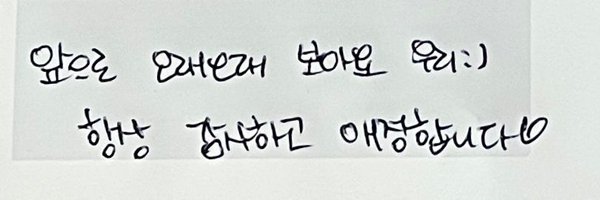 앞으로 오래오래 보아요 우리:)
항상 감사하고 애정합니다♡